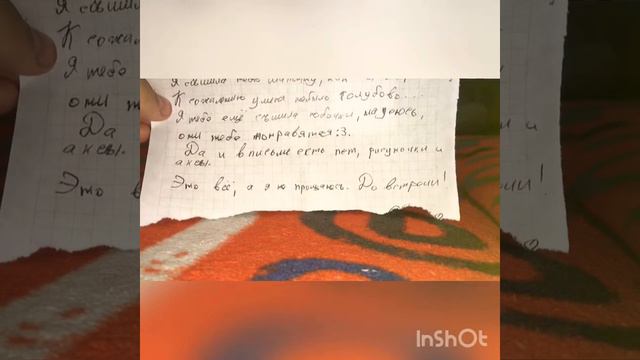 Я сшила тебе
К сожалению у меня небыло голубово....
Я тебе ещё сшила бабочки, надеюсь,
они тебе понравятся:3.
Да и в письме есть пет, рисуночки и
аксы.
Это всё, а я ю прощаюсь. До встречи!
InShOt